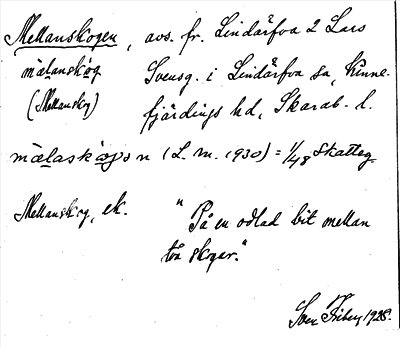 Mellanskogen, avs. fr. Lindärfva 2 Lars
mälanskog Svensg. i Lindärfva sn, Kinne-
(Mellanskog) fjärdings hd, Skarab. l.
mälaskogen (L. m. 1930) = 1/48 skatteg
Mellanskog, ek. "På en odlad bit mellan
två skogar."
Sven Friberg 1928.